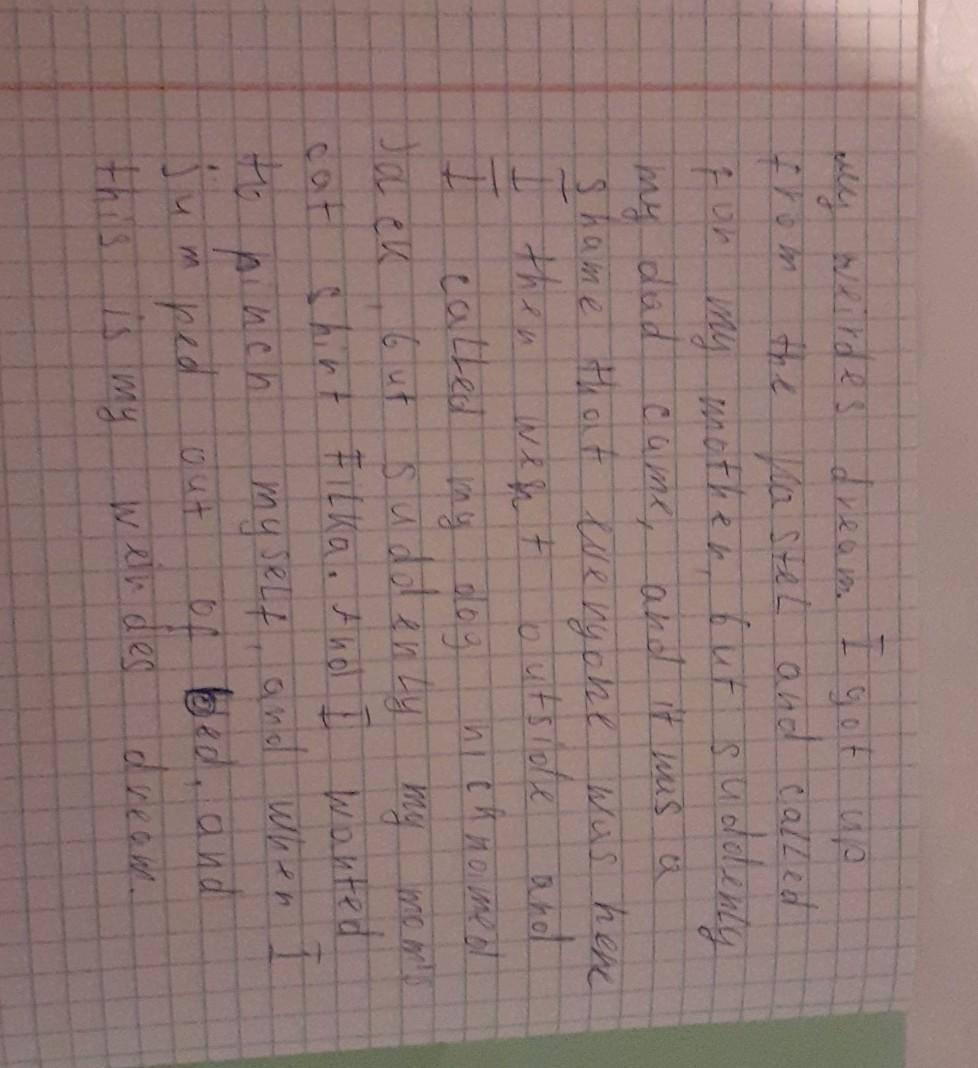 my weirdes dream. I got up
from the pastel and called
for my mother, but suddenly
my dad came, and it was a
shame that everyone was here
I then went outside and
I called my dog nicknamed
Jack, but suddenly my mom's
cat Shint Filka. And I wanted
to pinch myself, and when I
jumped out of bed, and
this is my weirdes dream.